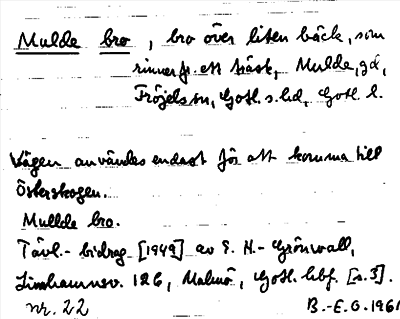 Mulde bro, bro över liten bäck, som
rinner fr. ett träsk, Mulde, gd,
Fröjels sn, Gotl. s. hd, Gotl. l.
Vägen användes endast för att komma till
Österskogen.
Mullde bro.
Tävl.- bidrag [1949] av E. H.- Grönwall,
Limhamnsv. 126, Malmö, Gotl. hbf. [s.3].
nr. 22 B.-E.O. 1961